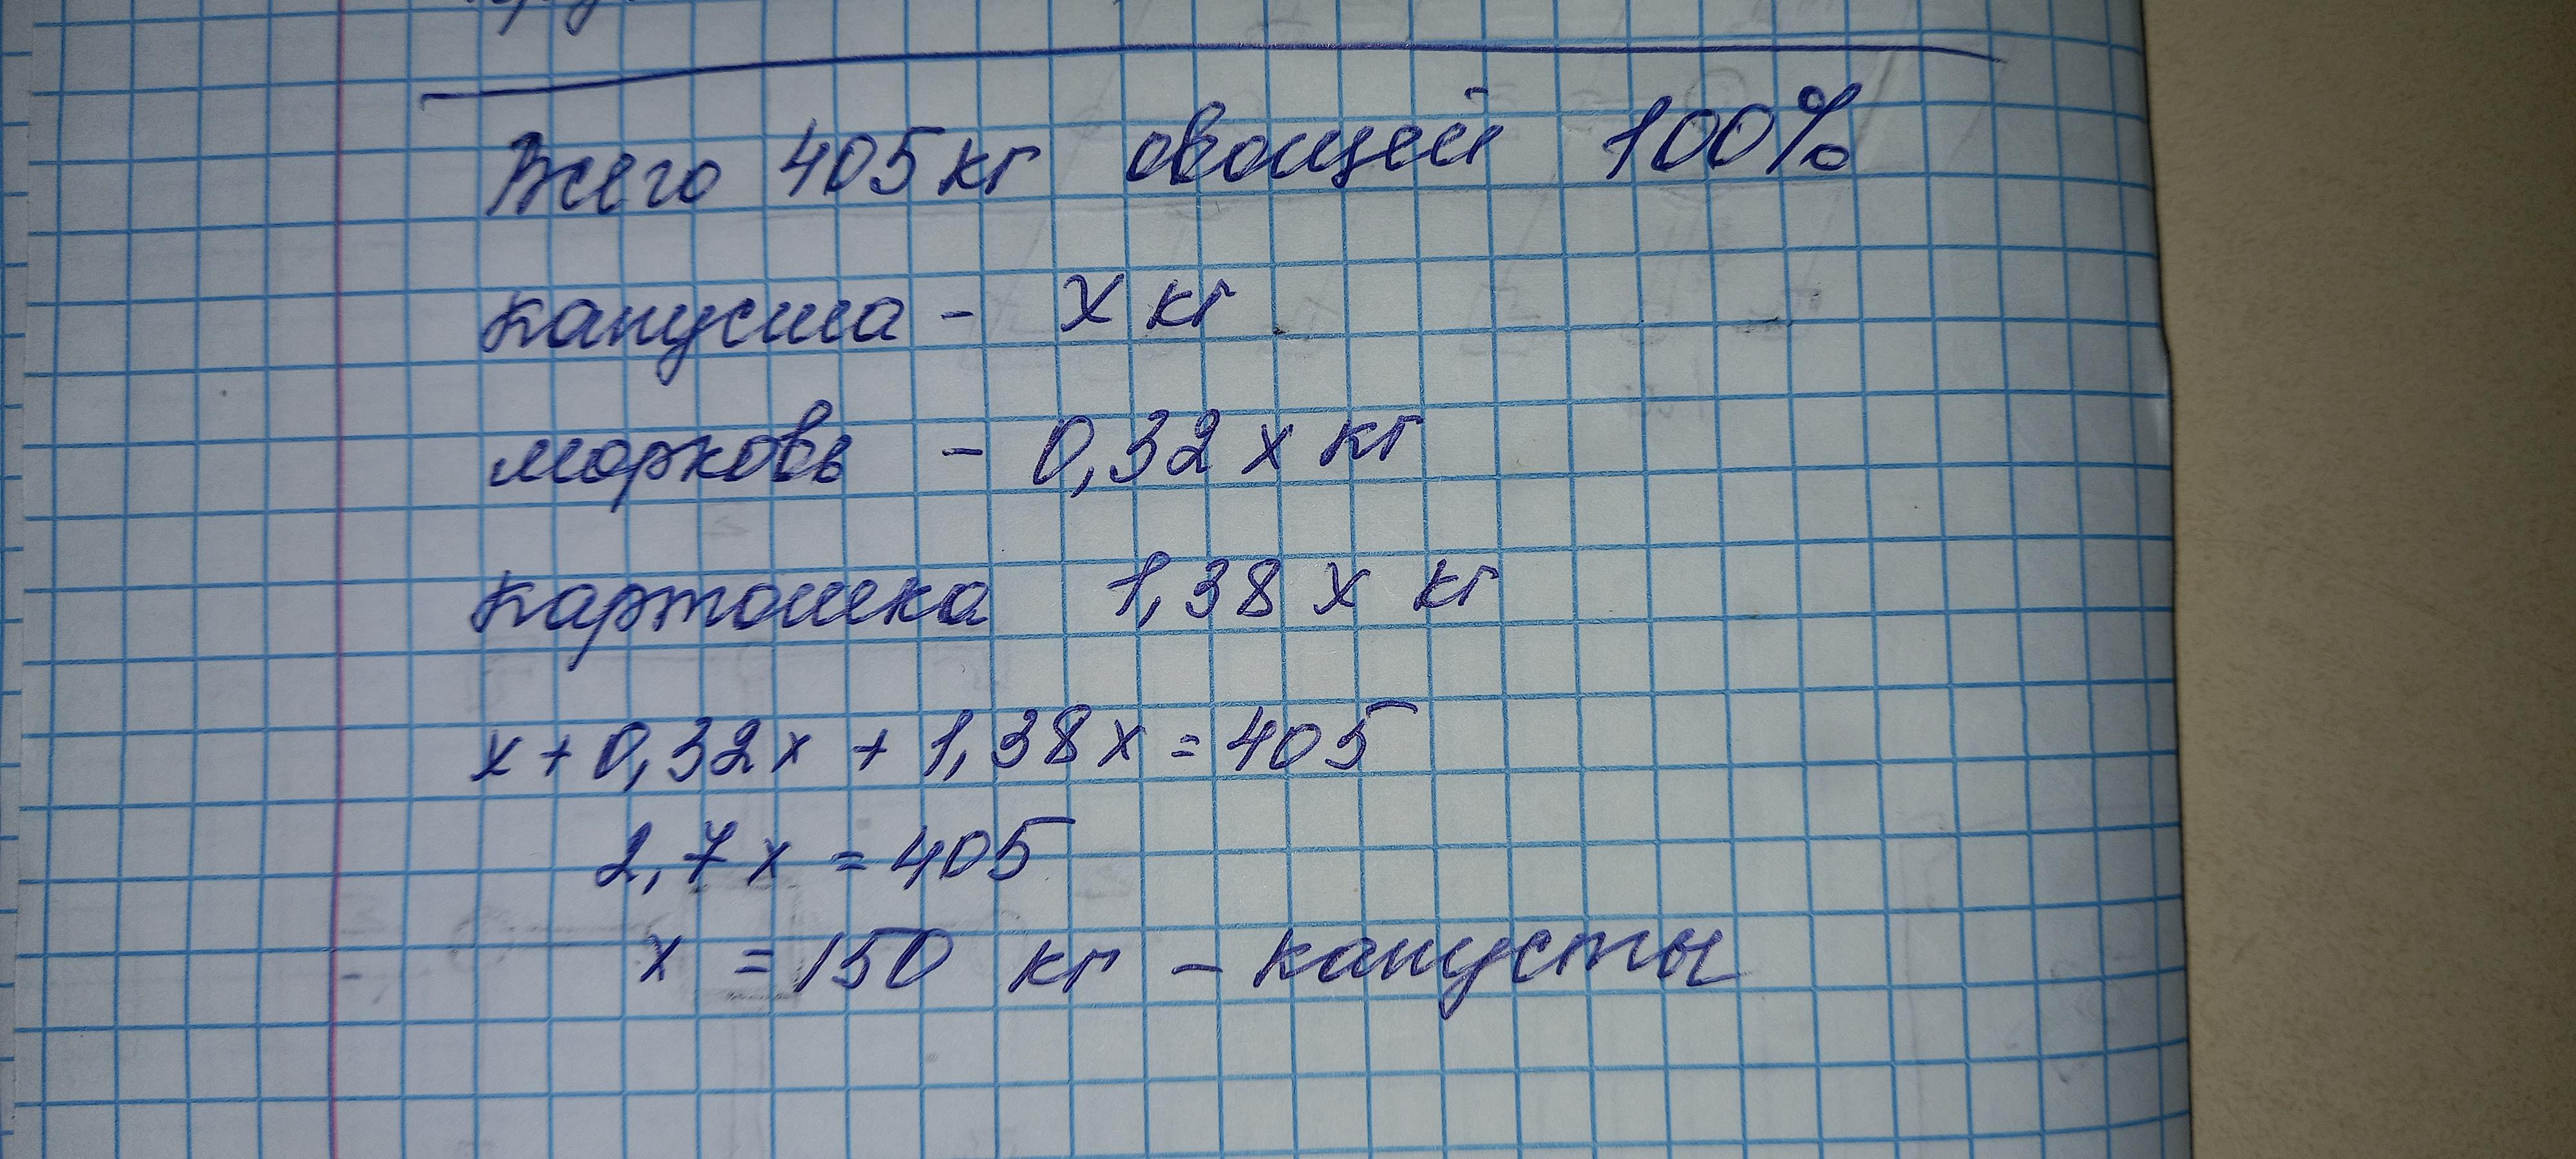 Всего 405 кг овощей 100%
капуста - х кг
морковь - 0,32 х кг
картошка 1,38 х кг
х + 0,32х + 1,38х = 405
2,7х = 405
х = 150 кг - капусты